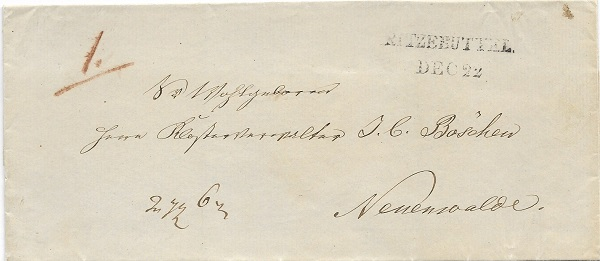 1.
RITZEBÜTTEL.
DEC 22
Sr Wohlgeboren
Herrn Klosterverwalter J. C. Böschen
Neuenwalde.